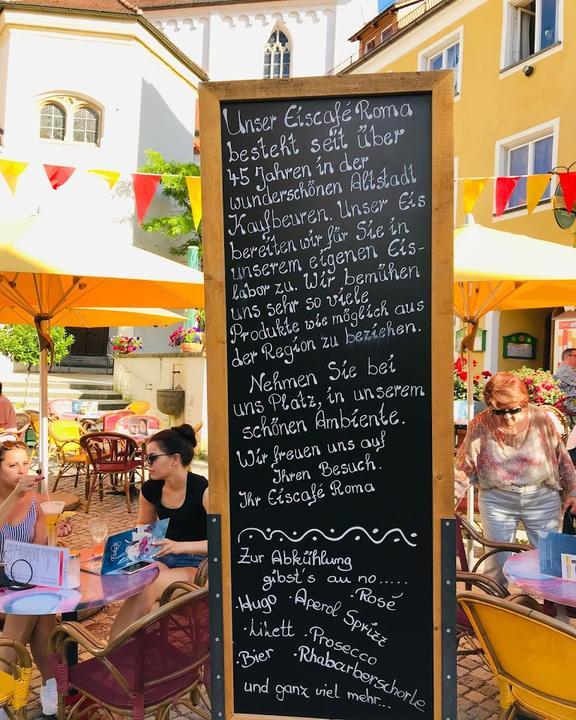 Unser Eiscafé Roma
besteht seit über
45 Jahren in der
wunderschönen Altstadt
Kaufbeuren. Unser Eis
bereiten wir für Sie in
unserem eigenen Eis-
labor zu. Wir bemühen
uns sehr so viele
Produkte wie möglich aus
der Region zu beziehen.
Nehmen Sie bei
uns Platz, in unserem
schönen Ambiente.
Wir freuen uns auf
Ihren Besuch.
Ihr Eiscafé Roma
Zur Abkühlung
gibt's au no.....
·Hugo ·Aperol Sprizz ·Rosé
·Lilett ·Prosecco
·Bier ·Rhabarberschorle
und ganz viel mehr...